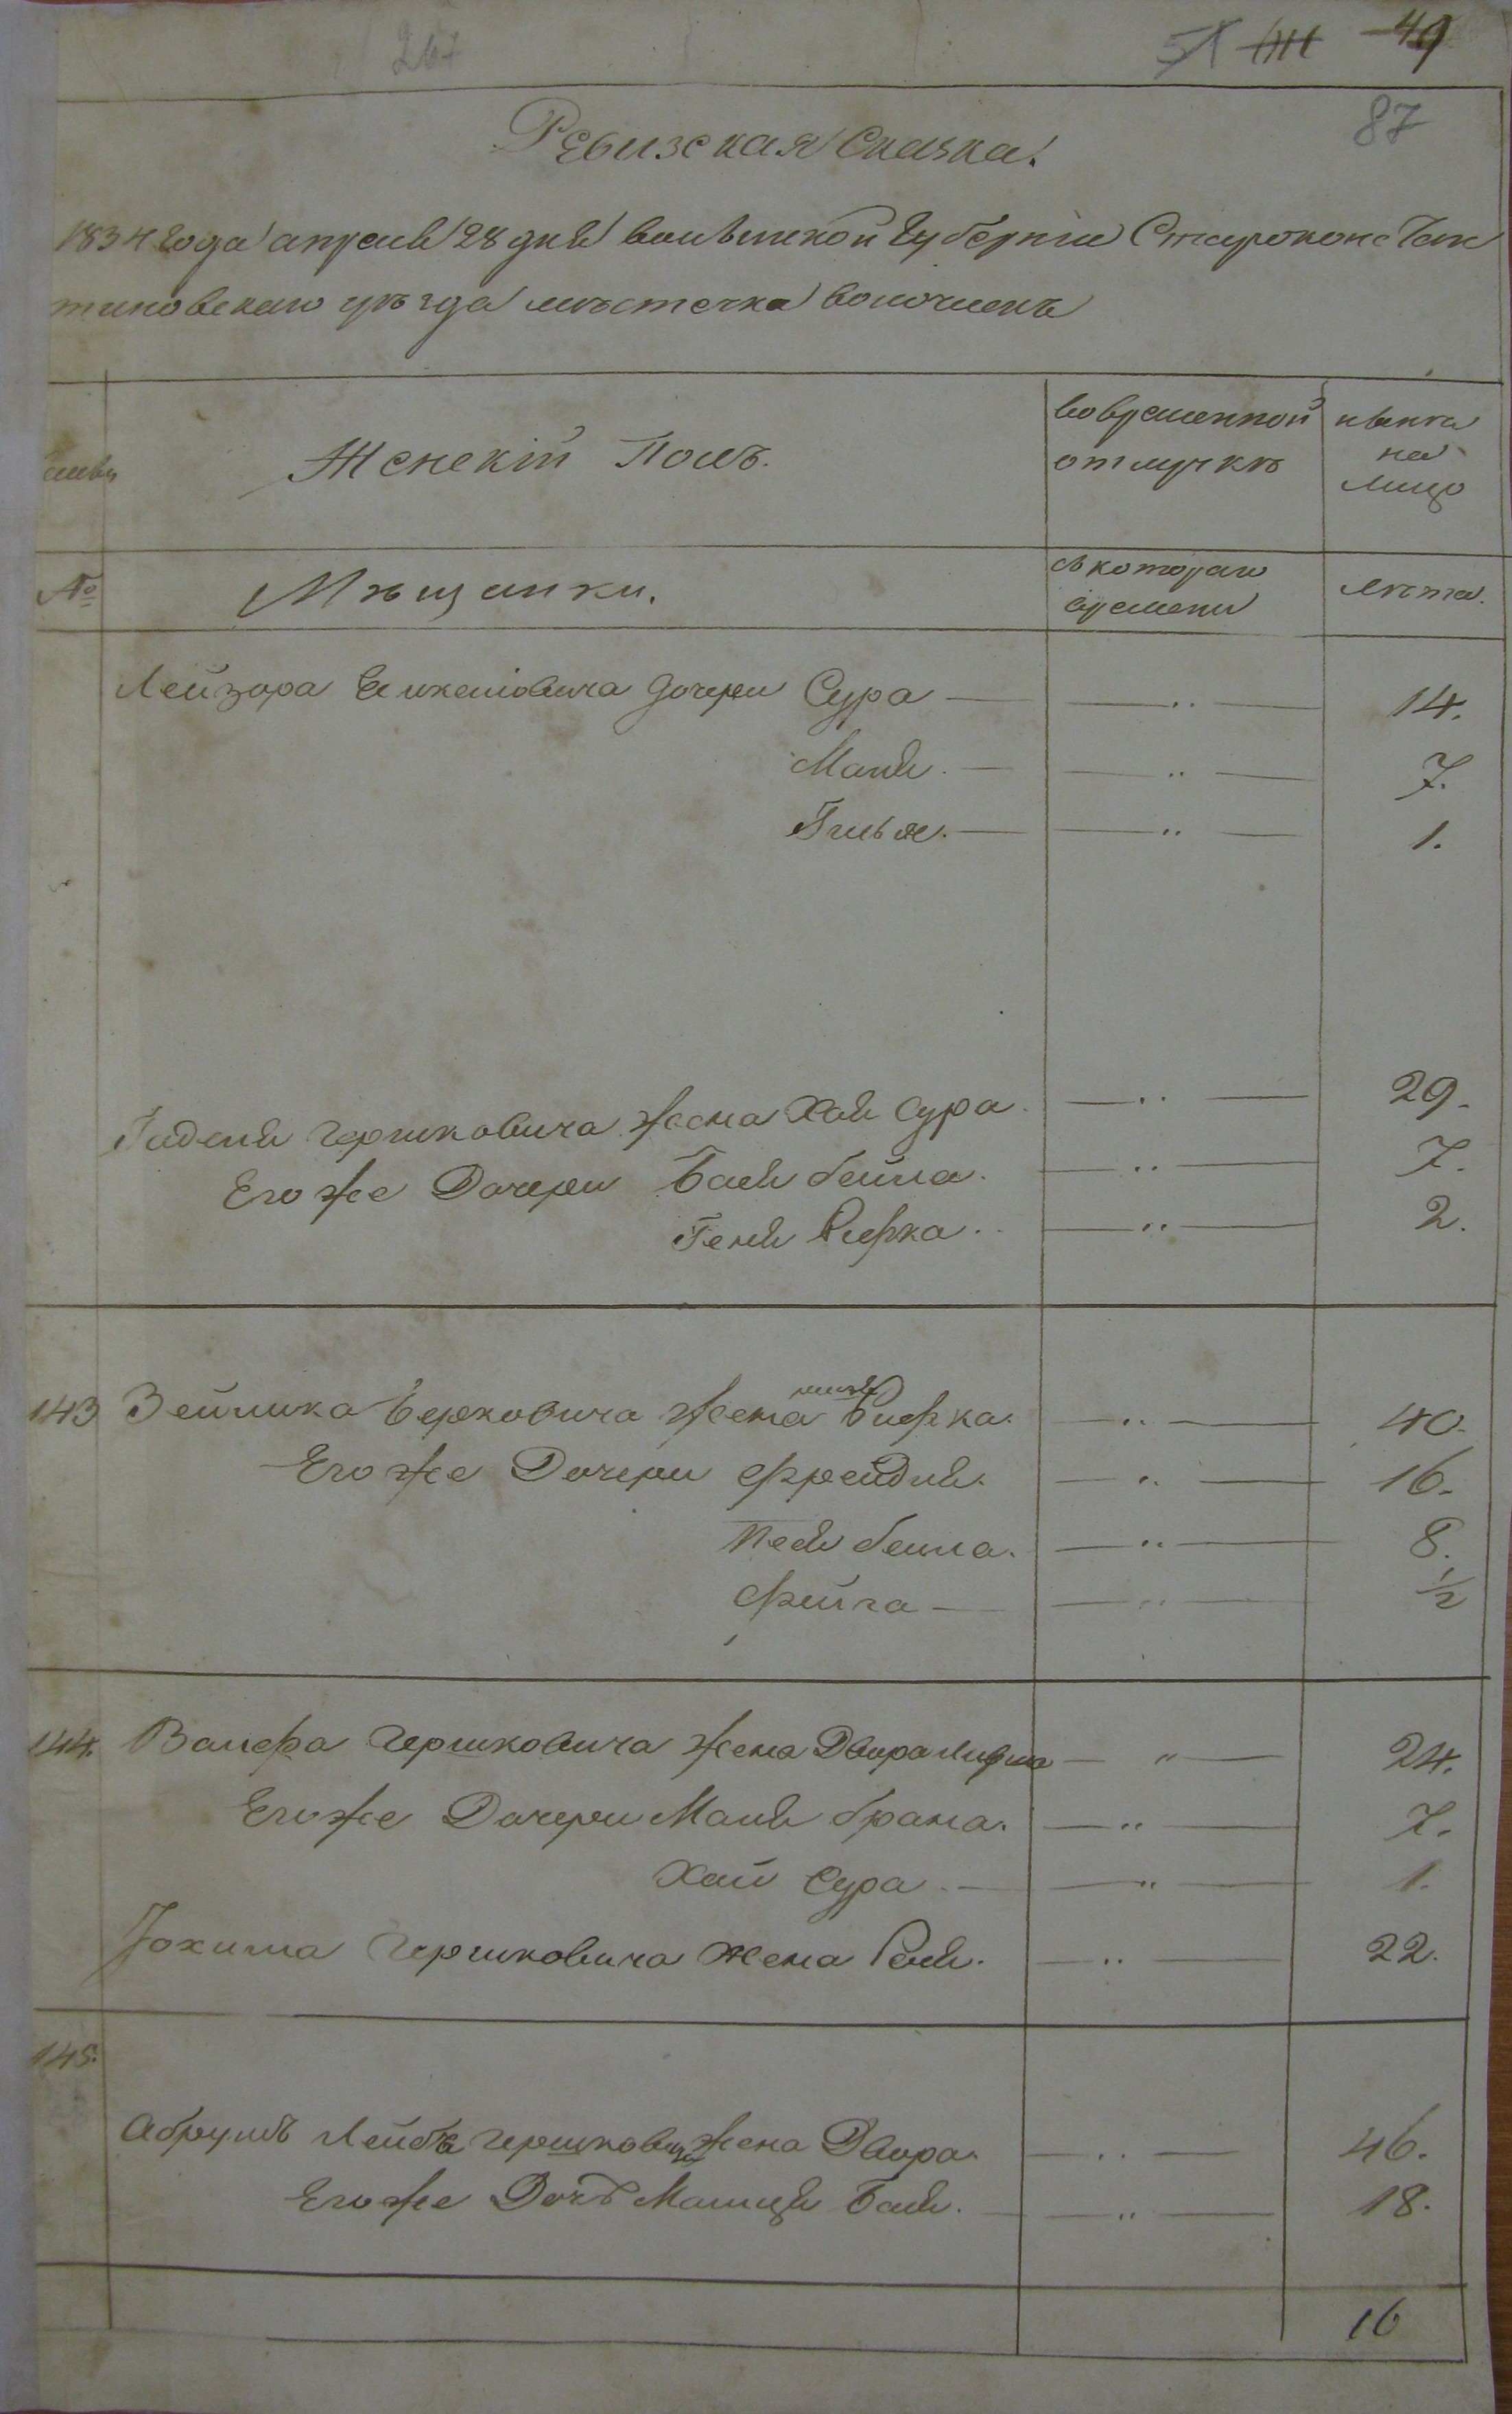 267
51 49
87
Ревизская Сказка.
1834 года апреля 28 дня волынской губерніи Староконстан
тиновскаго уѣзда мѣстечка волочискъ
Женскій Полъ.
во временной отлучкѣ
нынѣ на лицо
№
Мѣщанки.
съ котораго времени
лѣта.
Лейзора дочери Сура — — „ — 14.
Маня. — — „ — 7.
— — „ — 1.
Гершковича жена Хая Сура. — „ — 29.
Его же Дочери Бася бейла. — „ — 7.
Геня Рифка. — „ — 2.
143 Зейлика Берковича жена Рифка. — „ — 40.
Его же Дочери Фрейдля. — „ — 16.
Песя бейла. — „ — 8.
Фейга — — „ — 1/2
144. Волфа Гершковича жена Двора — „ — 24.
Его же Дочери Маня брана. — „ — 7.
Хая Сура — — „ — 1.
Іохима Гершковича жена — „ — 22.
145.
Абрумъ Лейба Гершковича жена Двора. — „ — 46.
Его же Дочь Бася. — „ — 18.
16